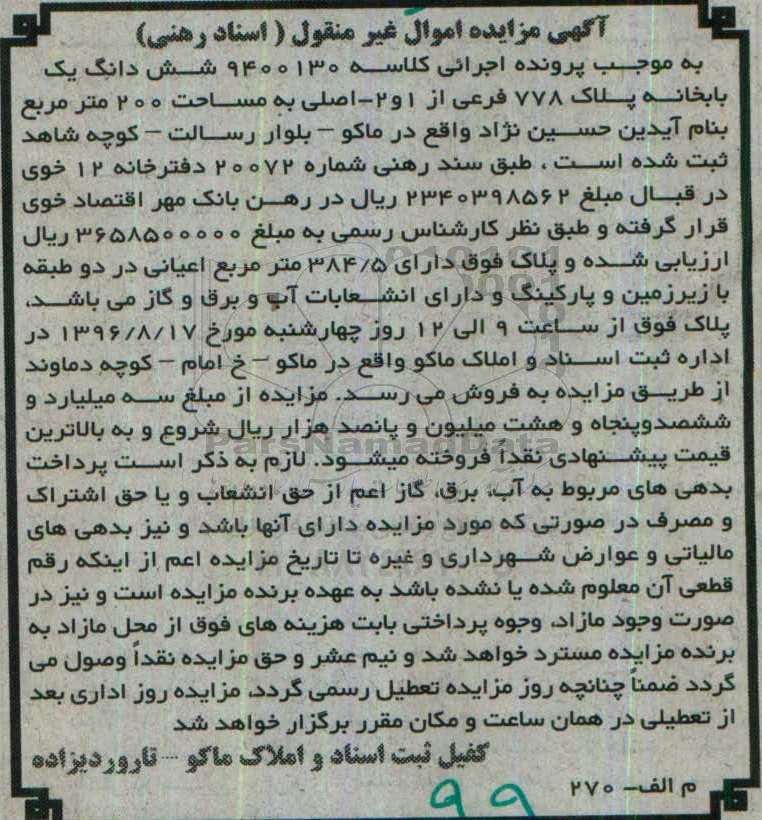 آگهی مزایده اموال غیر منقول ( اسناد رهنی)
به موجب پرونده اجرائی کلاسه ۹۴۰۰۱۳۰ شش دانگ یک
بابخانه پلاک ۷۷۸ فرعی از ۱و۲-اصلی به مساحت ۲۰۰ متر مربع
بنام آیدین حسین نژاد واقع در ماکو – بلوار رسالت – کوچه شاهد
ثبت شده است ، طبق سند رهنی شماره ۲۰۰۷۲ دفترخانه ۱۲ خوی
در قبال مبلغ ۲۳۴۰۳۹۸۵۶۲ ریال در رهن بانک مهر اقتصاد خوی
قرار گرفته و طبق نظر کارشناس رسمی به مبلغ ۳۶۵۸۵۰۰۰۰۰ ریال
ارزیابی شده و پلاک فوق دارای ۳۸۴/۵ متر مربع اعیانی در دو طبقه
با زیرزمین و پارکینگ و دارای انشعابات آب و برق و گاز می باشد،
پلاک فوق از ساعت ۹ الی ۱۲ روز چهارشنبه مورخ ۱۳۹۶/۸/۱۷ در
اداره ثبت اسناد و املاک ماکو واقع در ماکو – خ امام – کوچه دماوند
از طریق مزایده به فروش می رسد. مزایده از مبلغ سه میلیارد و
ششصدوپنجاه و هشت میلیون و پانصد هزار ریال شروع و به بالاترین
قیمت پیشنهادی نقداً فروخته میشود. لازم به ذکر است پرداخت
بدهی های مربوط به آب، برق، گاز اعم از حق انشعاب و یا حق اشتراک
و مصرف در صورتی که مورد مزایده دارای آنها باشد و نیز بدهی های
مالیاتی و عوارض شهرداری و غیره تا تاریخ مزایده اعم از اینکه رقم
قطعی آن معلوم شده یا نشده باشد به عهده برنده مزایده است و نیز در
صورت وجود مازاد، وجوه پرداختی بابت هزینه های فوق از محل مازاد به
برنده مزایده مسترد خواهد شد و نیم عشر و حق مزایده نقداً وصول می
گردد ضمناً چنانچه روز مزایده تعطیل رسمی گردد، مزایده روز اداری بعد
از تعطیلی در همان ساعت و مکان مقرر برگزار خواهد شد
کفیل ثبت اسناد و املاک ماکو --- تاروردیزاده
م الف- ۲۷۰
۹۹
ParsNamadData